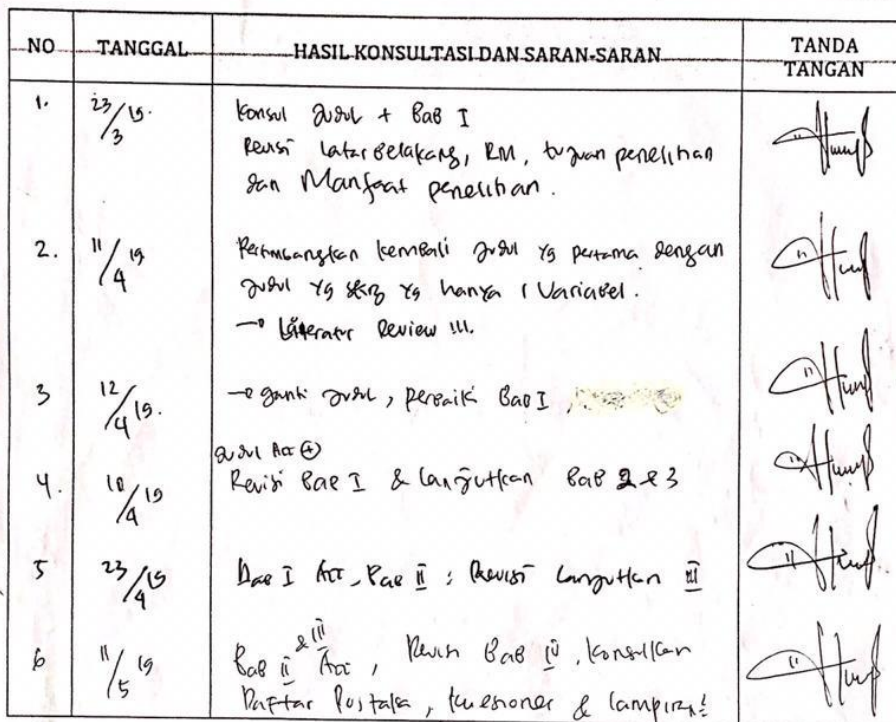 NO TANGGAL HASIL KONSULTASI DAN SARAN-SARAN TANDA TANGAN
1. 23/3 19. Konsul Judul + Bab I
Revisi latar belakang, RM, tujuan penelitian
dan Manfaat penelitian.
2. 11/4 19 Pertimbangkan kembali Judul yg pertama dengan
Judul yg skrg yg hanya 1 Variabel.
→ Literatur Review !!!.
3 12/4 19. → ganti Judul, perbaiki Bab I,
Judul Acc (+)
4. 18/4 19 Revisi Bab I & lanjutkan Bab 2 & 3
5 23/4 19 Bab I Acc, Bab II : Revisi lanjutkan III
6 11/5 19 Bab II & III Acc, Revisi Bab IV, konsulkan
Daftar Pustaka, kuesioner & lampiran!